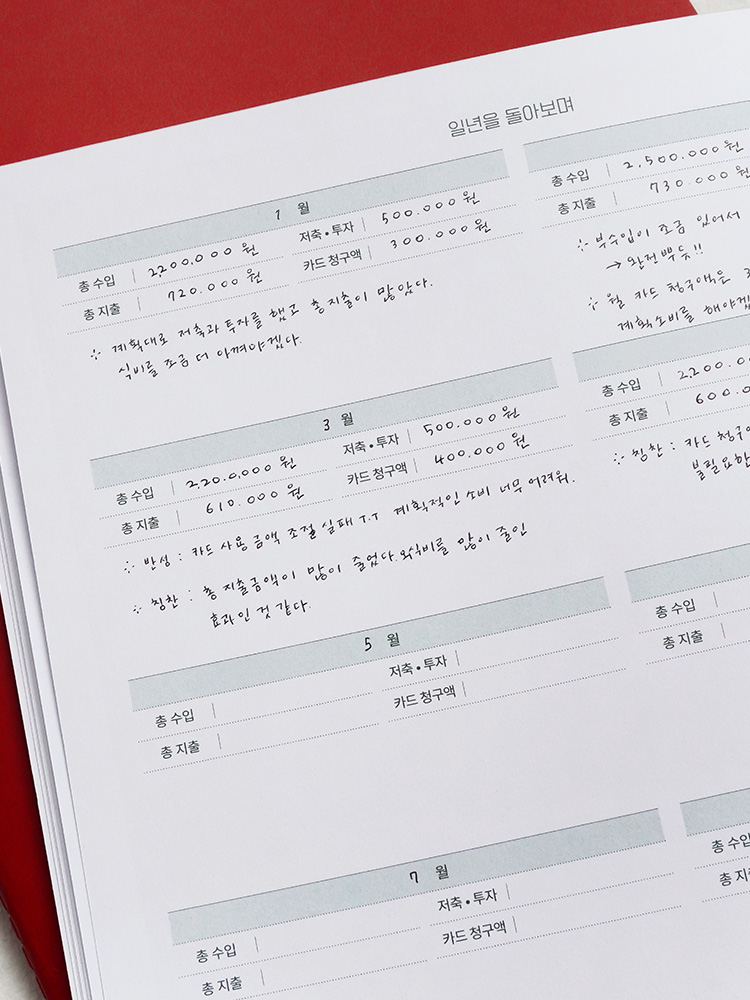 일년을 돌아보며
1 월
총 수입 2,200,000 원 저축•투자 500.000 원
총 지출 720.000 원 카드 청구액 300.000 원
계획대로 저축과 투자를 했고 총 지출이 많았다.
식비를 조금 더 아껴야겠다.
총 수입 2,500.000 원
총 지출 730.000 원
부수입이 조금 있어서
→ 완전뿌듯!!
월 카드 청구액은
계획소비를 해야겠
3 월
총 수입 2,20.0,000 원 저축•투자 500.000 원
총 지출 610.000 원 카드 청구액 400.000 원
반성 : 카드 사용 금액 조절 실패 T.T 계획적인 소비 너무 어려워.
칭찬 : 총 지출금액이 많이 줄었다. 외식비를 많이 줄인
효과인 것 같다.
총 수입 2,200.0
총 지출 600.0
칭찬 : 카드 청구
불필요한
5 월
총 수입 저축•투자
총 지출 카드 청구액
총 수입
총 지출
7 월
총 수입 저축•투자
총 지출 카드 청구액
총 수입
총 지